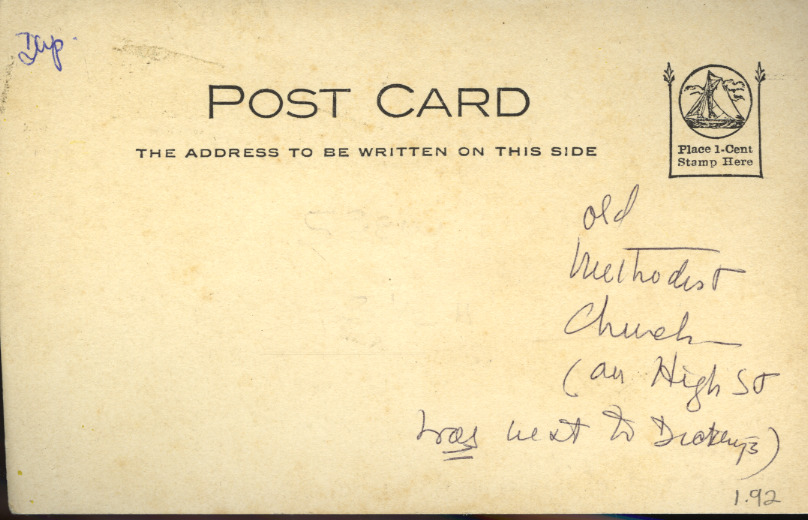 Dup.
POST CARD
THE ADDRESS TO BE WRITTEN ON THIS SIDE
Place 1-Cent
Stamp Here
old
Methodist
Church
(on High St
was next to
1.92